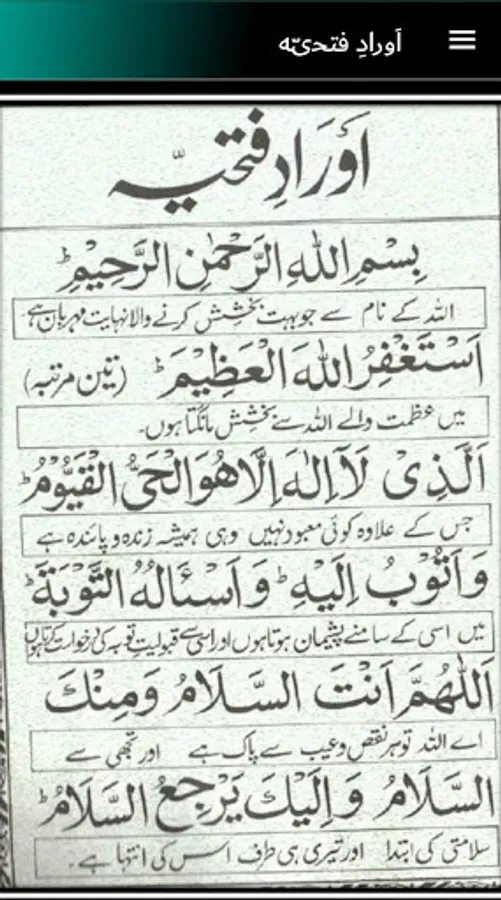 اَورادِ فتحیّہ
اَوْرَادِ فتحیّہ
بِسْمِ اللهِ الرَّحْمٰنِ الرَّحِيْمِ ؕ
اللہ کے نام سے جو بہت بخشش کرنے والا نہایت مہربان ہے۔
اَسْتَغْفِرُ اللهَ الْعَظِيْمَ ؕ (تین مرتبہ)
میں عظمت والے اللہ سے بخشش مانگتا ہوں۔
اَلَّذِىْ لَآ اِلٰهَ اِلَّا هُوَ الْحَىُّ الْقَيُّوْمُ ؕ
جس کے علاوہ کوئی معبود نہیں وہی ہمیشہ زندہ و پائندہ ہے
وَ اَتُوْبُ اِلَيْهِ ؕ وَ اَسْئَالُهُ التَّوْبَةَ ؕ
میں اسی کے سامنے پشیمان ہوتا ہوں اور اسی سے قبولیتِ توبہ کی درخواست کرتا ہوں
اَللّٰهُمَّ اَنْتَ السَّلَامُ وَ مِنْكَ
اے اللہ تو ہر نقص و عیب سے پاک ہے اور تجھی سے
السَّلَامُ وَ اِلَيْكَ يَرْجِعُ السَّلَامُ ؕ
سلامتی کی ابتدا اور تیری ہی طرف اس کی انتہا ہے۔